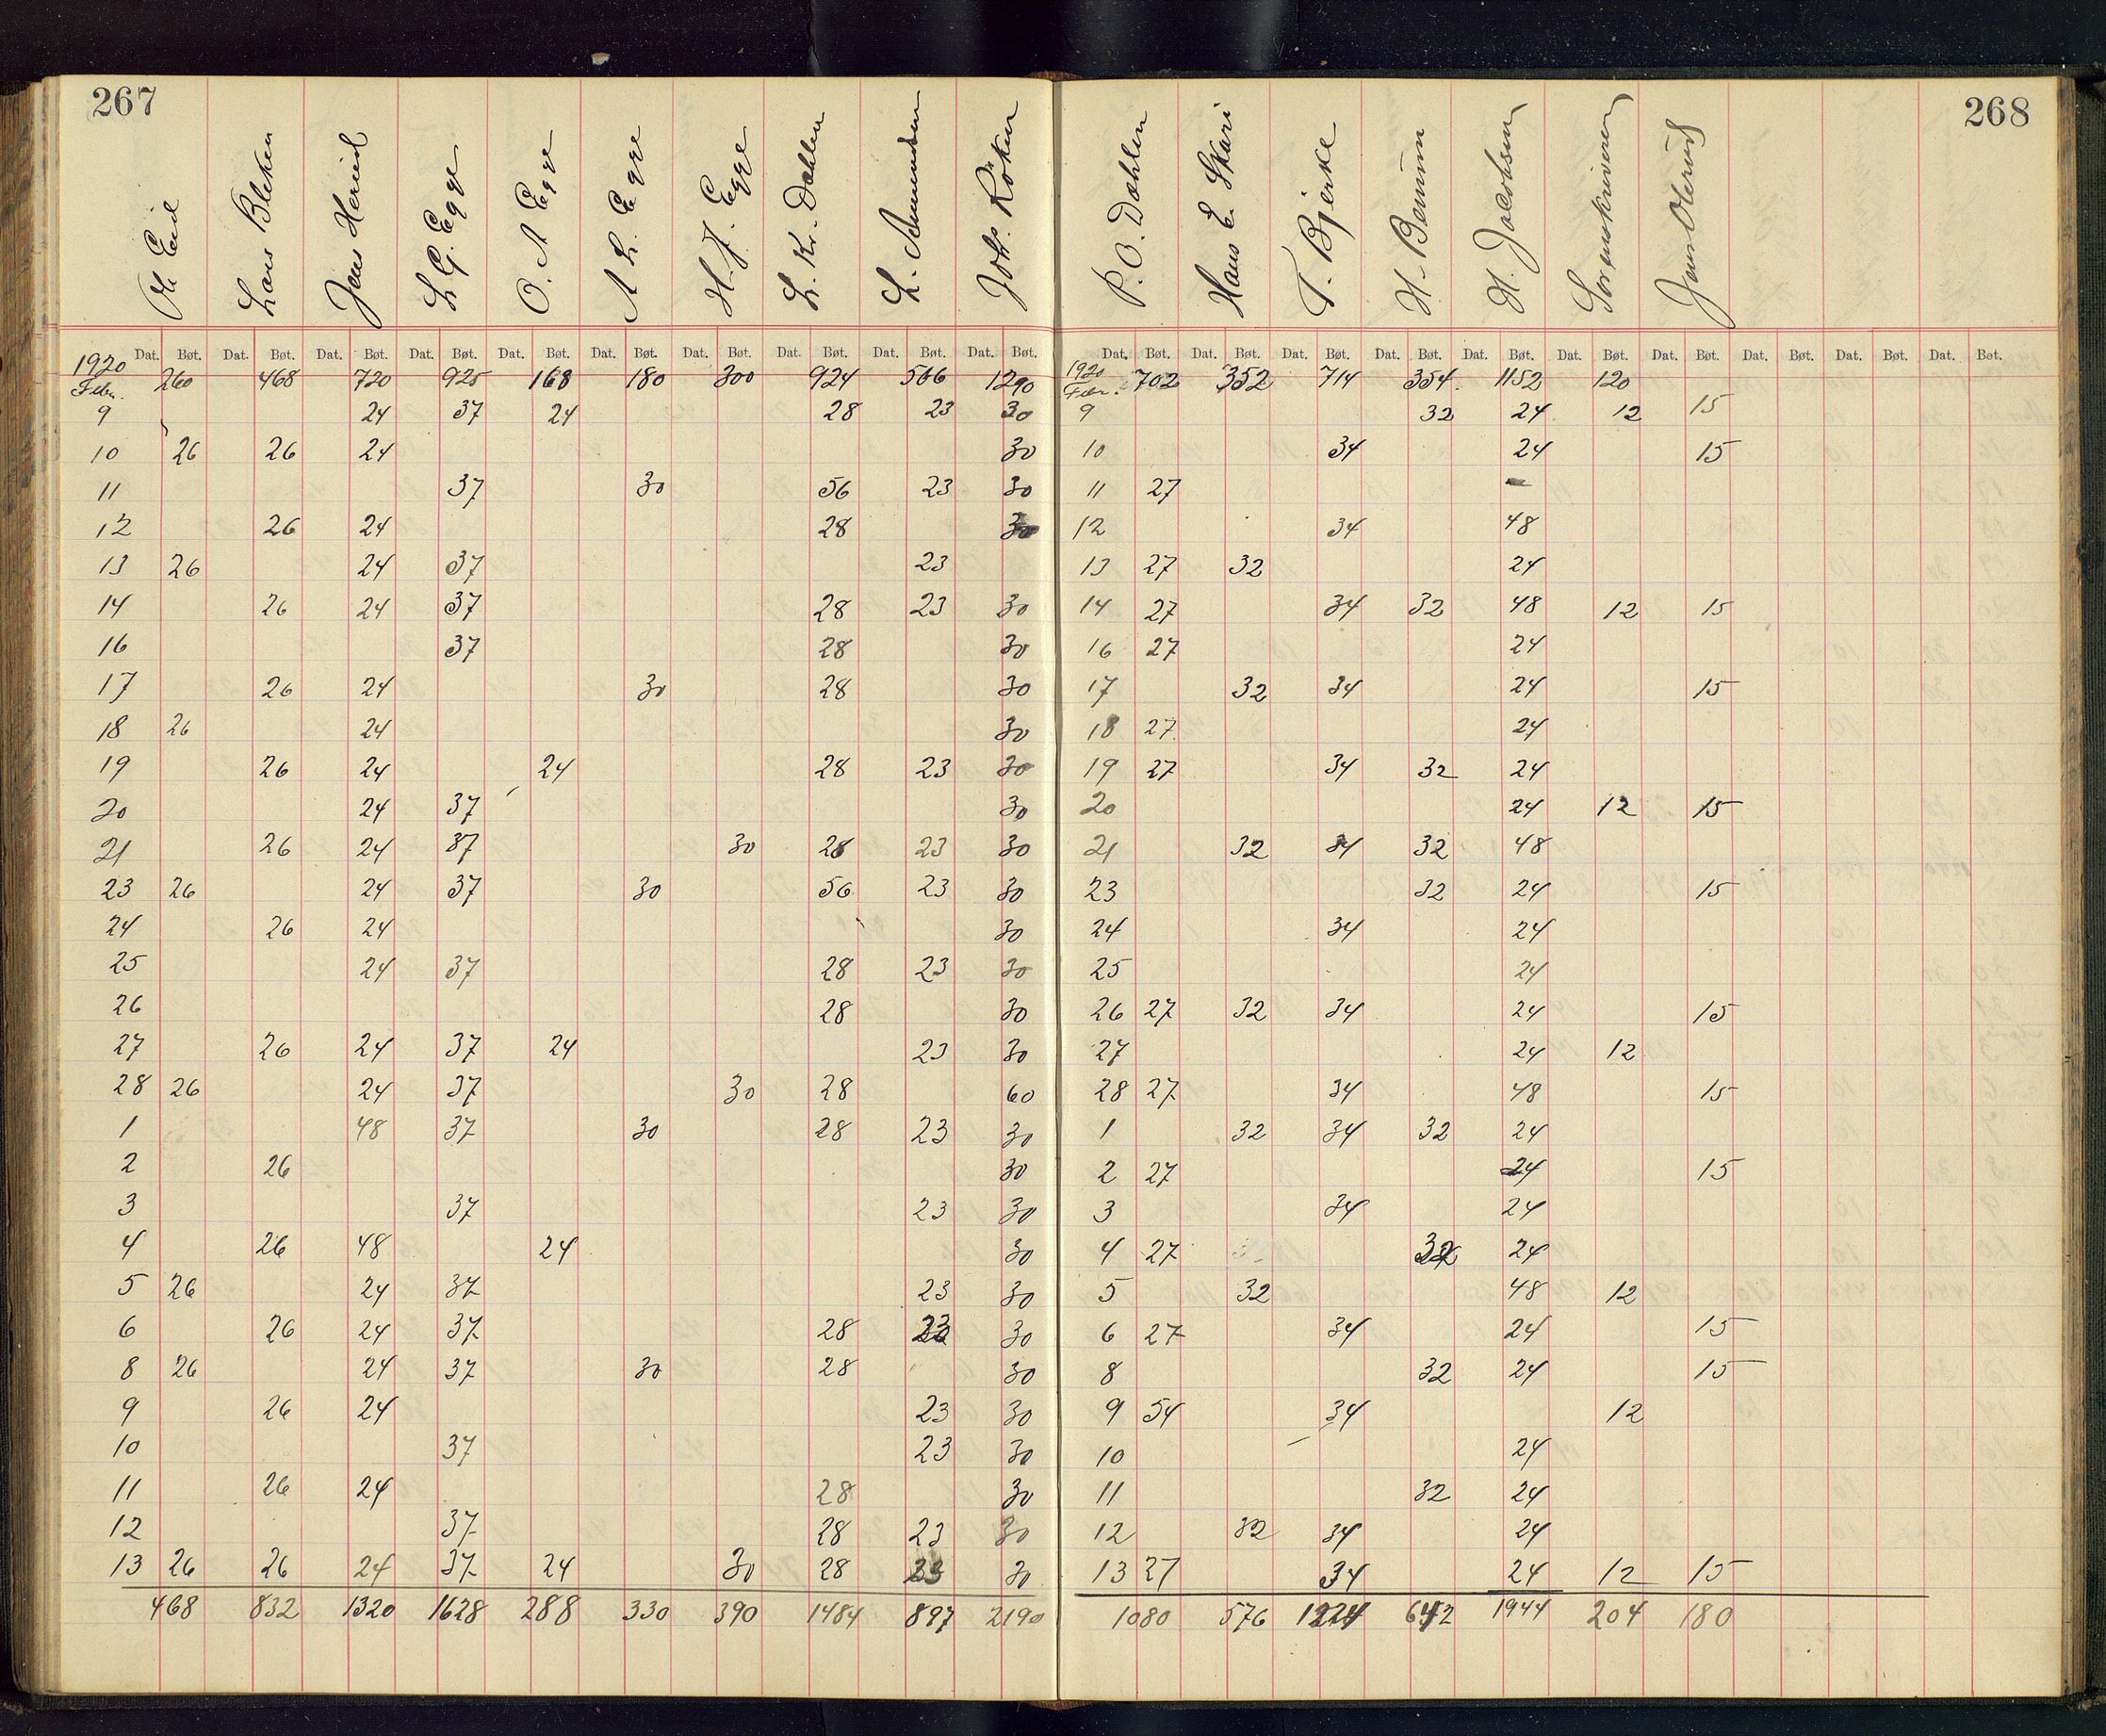 267
Ole Eid Lars Bleken Jens Hereid L. G. Egge O. A Egge A L. Egge H. J. Egge L. Kr. Dæhlen L. Amundsen Joh. Röken
Dat. Bøt. Dat. Bøt. Dat. Bøt. Dat. Bøt. Dat. Bøt. Dat. Bøt. Dat. Bøt. Dat. Bøt. Dat. Bøt. Dat. Bøt.
1920
Febr. 260 468 720 925 168 180 300 924 506 1290
9 24 37 24 28 23 30
10 26 26 24 30
11 37 30 56 23 30
12 26 24 28 30
13 26 24 37 23
14 26 24 37 28 23 30
16 37 28 30
17 26 24 30 28 30
18 26 24 30
19 26 24 24 28 23 30
20 24 37 30
21 26 24 37 30 28 23 30
23 26 24 37 30 56 23 30
24 26 24 30
25 24 37 28 23 30
26 28 30
27 26 24 37 24 23 30
28 26 24 37 30 28 60
1 48 37 30 28 23 30
2 26 30
3 37 23 30
4 26 48 24 30
5 26 24 37 23 30
6 26 24 37 28 23 30
8 26 24 37 30 28 30
9 26 24 23 30
10 37 23 30
11 26 24 28 30
12 37 28 23 30
13 26 26 24 37 24 30 28 23 30
468 832 1320 1628 288 330 390 1484 897 2190
268
P. O. Dæhlen Hans E. Skari T. Bjerke H. Berum H. Jacobsen Sorenskriveren Jens Olerud
Dat. Bøt. Dat. Bøt. Dat. Bøt. Dat. Bøt. Dat. Bøt. Dat. Bøt. Dat. Bøt. Dat. Bøt. Dat. Bøt. Dat. Bøt.
1920
Febr. 702 352 714 354 1152 120
9 32 24 12 15
10 34 24 15
11 27 -
12 34 48
13 27 32 24
14 27 34 32 48 12 15
16 27 24
17 32 34 24 15
18 27 24
19 27 34 32 24
20 24 12 15
21 32 34 32 48
23 32 24 15
24 34 24
25 24
26 27 32 34 24 15
27 24 12
28 27 34 48 15
1 32 34 32 24
2 27 24 15
3 34 24
4 27 32 24
5 32 48 12
6 27 34 24 15
8 32 24 15
9 54 34 12
10 24
11 32 24
12 32 34 24
13 27 34 24 12 15
1080 576 1224 642 1944 204 180